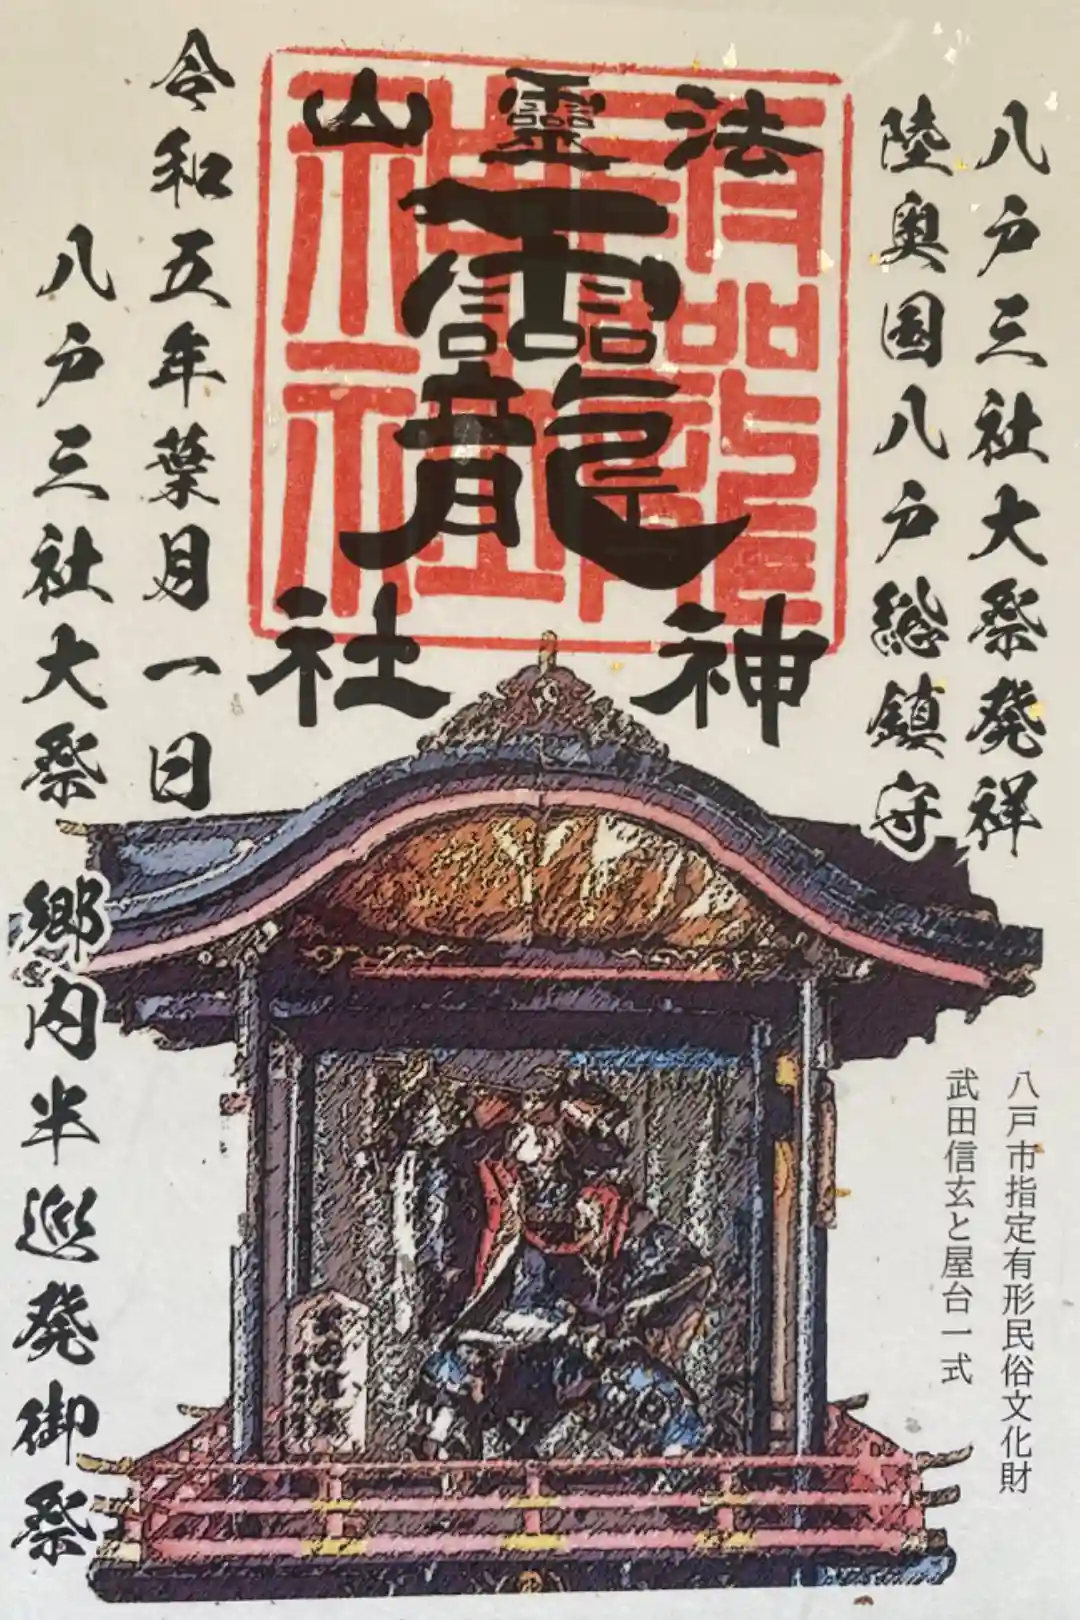 八戸三社大祭発祥
陸奥国八戸総鎮守
法靈山
龗
神社
龗神社
令和五年葉月一日
八戸三社大祭 郷内半巡発御祭
八戸市指定有形民俗文化財
武田信玄と屋台一式